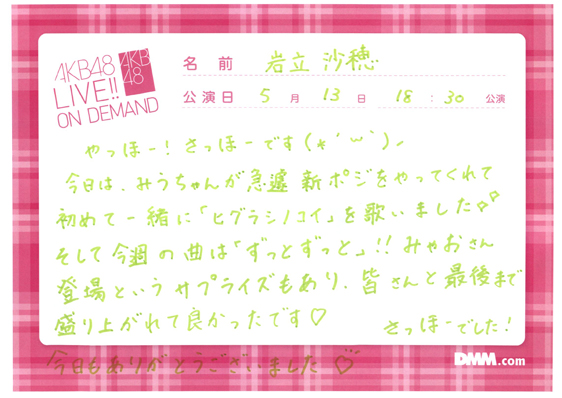 AKB48
LIVE!!
ON DEMAND
AKB
48
名 前 岩立 沙穂
公演日 5 月 13 日 18 : 30 公演
やっほー! さっほーです(*´ω`)ノ
今日は、みうちゃんが急遽 新ポジをやってくれて
初めて一緒に「ヒグラシノコイ」を歌いました
そして今週の曲は「ずっとずっと」!! みゃおさん
登場というサプライズもあり、皆さんと最後まで
盛り上がれて良かったです♡
さっほーでした!
今日もありがとうございました♡
DMM.com